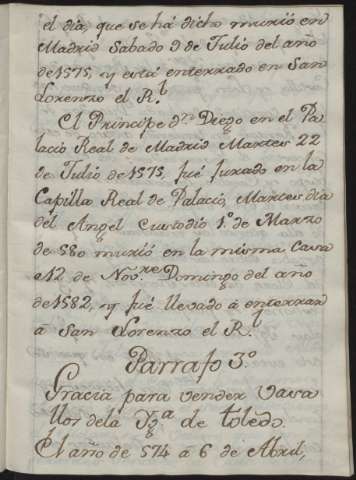 el dia, que se há dicho murió en
Madrid Sabado 9 de Julio del año
de 1575, y está enterrado en San
Lorenzo el R.l
El Principe d.n Diego en el Pa
lacio Real de Madrid Martes 22
de Julio de 1575, fué jurado en la
Capilla Real de Palacio, Martes dia
del Angel Custodio 1.º de Marzo
de 580 murió en la misma Casa
à 12 de Nov.re Domingo del año
de 1582, y fué llevado á enterrar
á San Lorenzo el R.l
Parrafo 3.º
Gracia para vender Vasa
llos dela Yg.a de toledo.
El año de 574 a 6 de Abril,